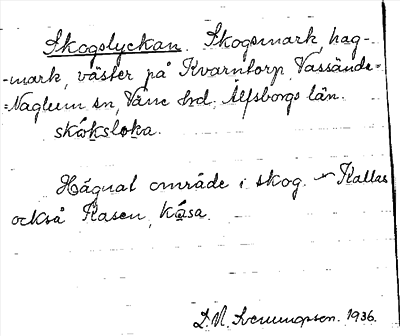 Skogslyckan. Skogsmark, hag-
-mark, väster på Kvarntorp, Vassände-
=Naglum sn, Väne hd. Älfsborgs län.
skóksloka.
Hägnat område i skog. — Kallas
också Kasen, kása.
D. N. Svenungsson. 1936.